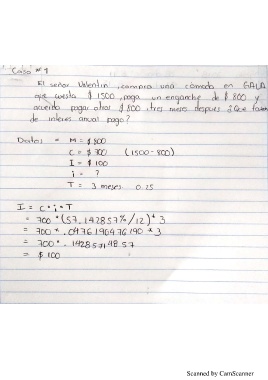 Caso #1
El señor Valentin, compra una cómoda en GALA
que cuesta $ 1500, paga un enganche de $ 800 y
acuerda pagar otros $ 800, tres meses después ¿Que
de interes anual pago?
Datos = M = $ 800
C = $ 700 (1500 - 800)
I = $ 100
i = ?
T = 3 meses 0.25
I = C · i · T
= 700 * (57.142857% / 12) * 3
= 700 * .0476190476190 * 3
= 700 * .1428571428 57
= $ 100
Scanned by CamScanner